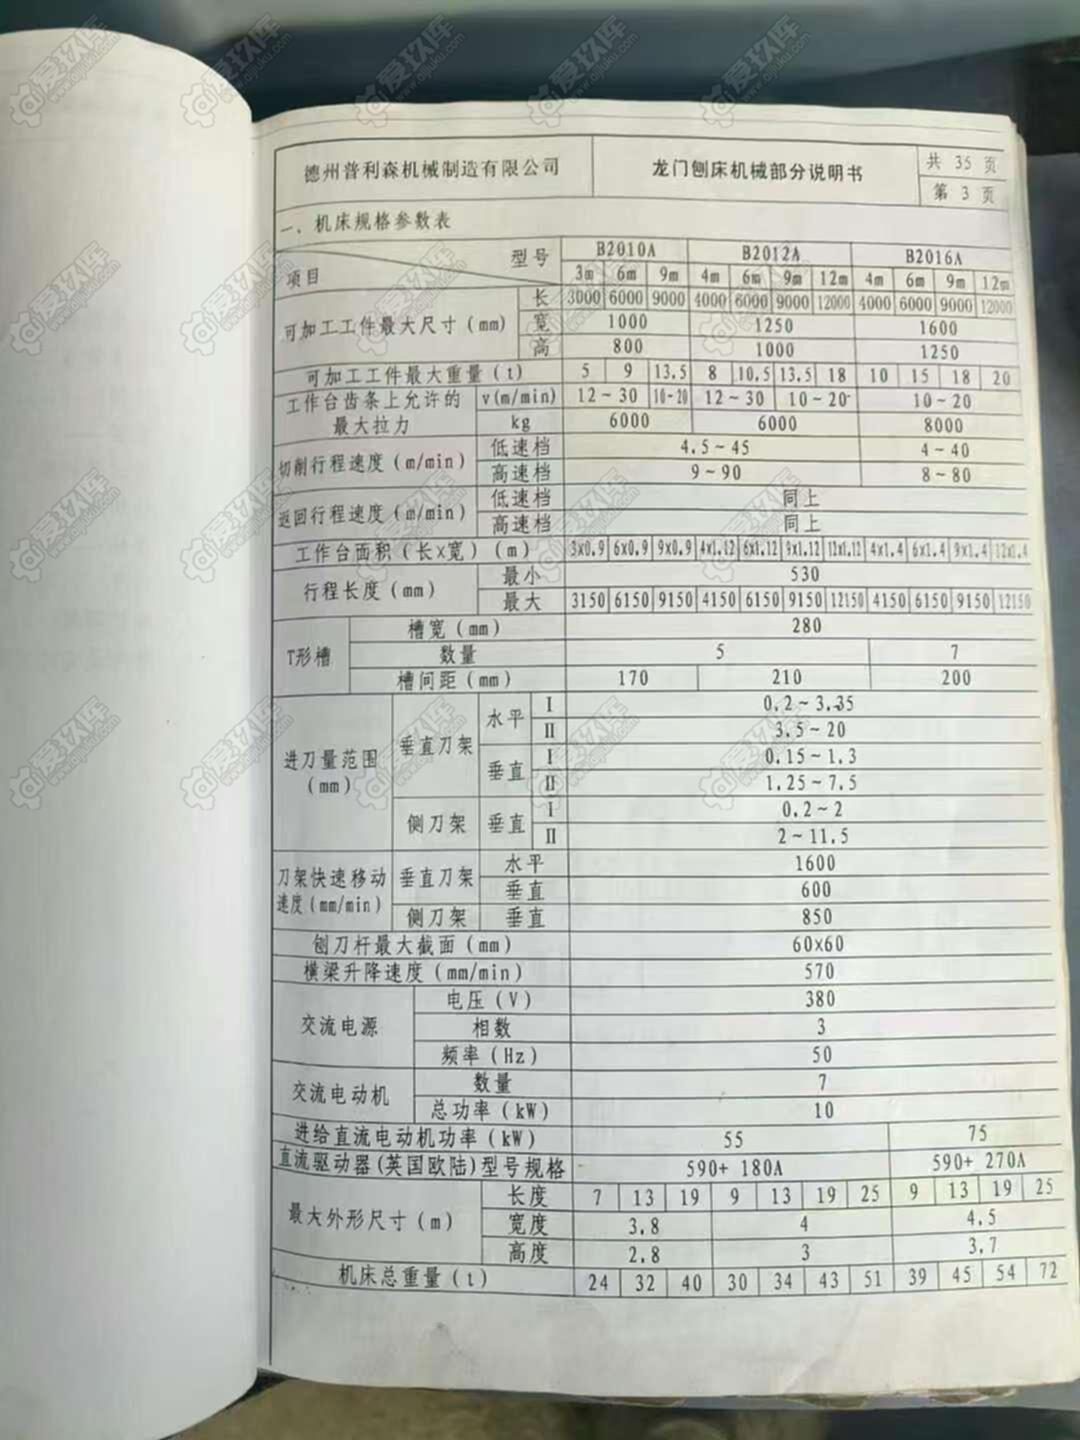 德州普利森机械制造有限公司 龙门刨床机械部分说明书 共 35 页
第 3 页
一、机床规格参数表
项目 型号 B2010A B2012A B2016A
3m 6m 9m 4m 6m 9m 12m 4m 6m 9m 12m
可加工工件最大尺寸(mm) 长 3000 6000 9000 4000 6000 9000 12000 4000 6000 9000 12000
宽 1000 1250 1600
高 800 1000 1250
可加工工件最大重量(t) 5 9 13.5 8 10.5 13.5 18 10 15 18 20
工作台齿条上允许的最大拉力 v(m/min) 12~30 10-20 12~30 10~20 10~20
kg 6000 6000 8000
切削行程速度(m/min) 低速档 4.5~45 4~40
高速档 9~90 8~80
返回行程速度(m/min) 低速档 同上
高速档 同上
工作台面积(长x宽)(m) 3x0.9 6x0.9 9x0.9 4x1.12 6x1.12 9x1.12 12x1.12 4x1.4 6x1.4 9x1.4 12x1.4
行程长度(mm) 最小 530
最大 3150 6150 9150 4150 6150 9150 12150 4150 6150 9150 12150
T形槽 槽宽(mm) 280
数量 5 7
槽间距(mm) 170 210 200
进刀量范围(mm) 垂直刀架 水平 I 0.2~3.35
II 3.5~20
垂直 I 0.15~1.3
II 1.25~7.5
侧刀架 垂直 I 0.2~2
II 2~11.5
刀架快速移动速度(mm/min) 垂直刀架 水平 1600
垂直 600
侧刀架 垂直 850
刨刀杆最大截面(mm) 60x60
横梁升降速度(mm/min) 570
交流电源 电压(V) 380
相数 3
频率(Hz) 50
交流电动机 数量 7
总功率(kW) 10
进给直流电动机功率(kW) 55 75
直流驱动器(英国欧陆)型号规格 590+ 180A 590+ 270A
最大外形尺寸(m) 长度 7 13 19 9 13 19 25 9 13 19 25
宽度 3.8 4 4.5
高度 2.8 3 3.7
机床总重量(t) 24 32 40 30 34 43 51 39 45 54 72
爱玖库
www.aijiuku.com